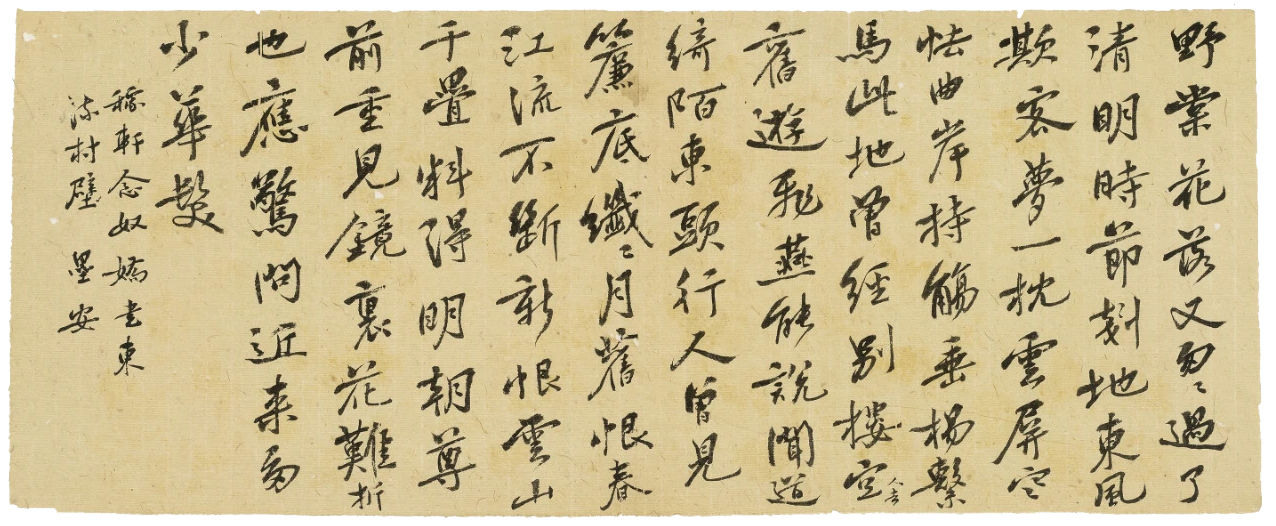 野棠花落又匆〻過了
清明時節剗地東風
欺客夢一枕雲屏寒
怯曲岸持觴垂楊繫
馬此地曾經別樓空人去
舊遊飛燕能說聞道
綺陌東頭行人曾見
簾底纖〻月舊恨春
江流不斷新恨雲山
千疊料得明朝尊
前重見鏡裏花難折
也應驚問近來多
少華髮
稼軒念奴嬌書東
流村壁 墨安